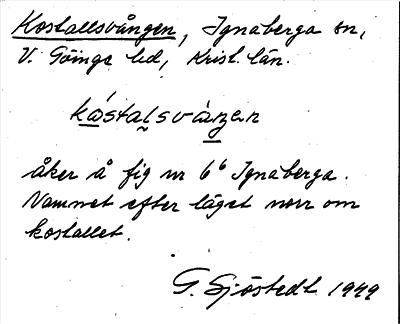 Kostallsvången, Ignaberga sn,
V. Göinge hd, Krist. län.
kåstalsvàŋen
åker å fig nr 6⁶ Ignaberga.
Namnet efter läget norr om
kostallet.
G. Sjöstedt 1949